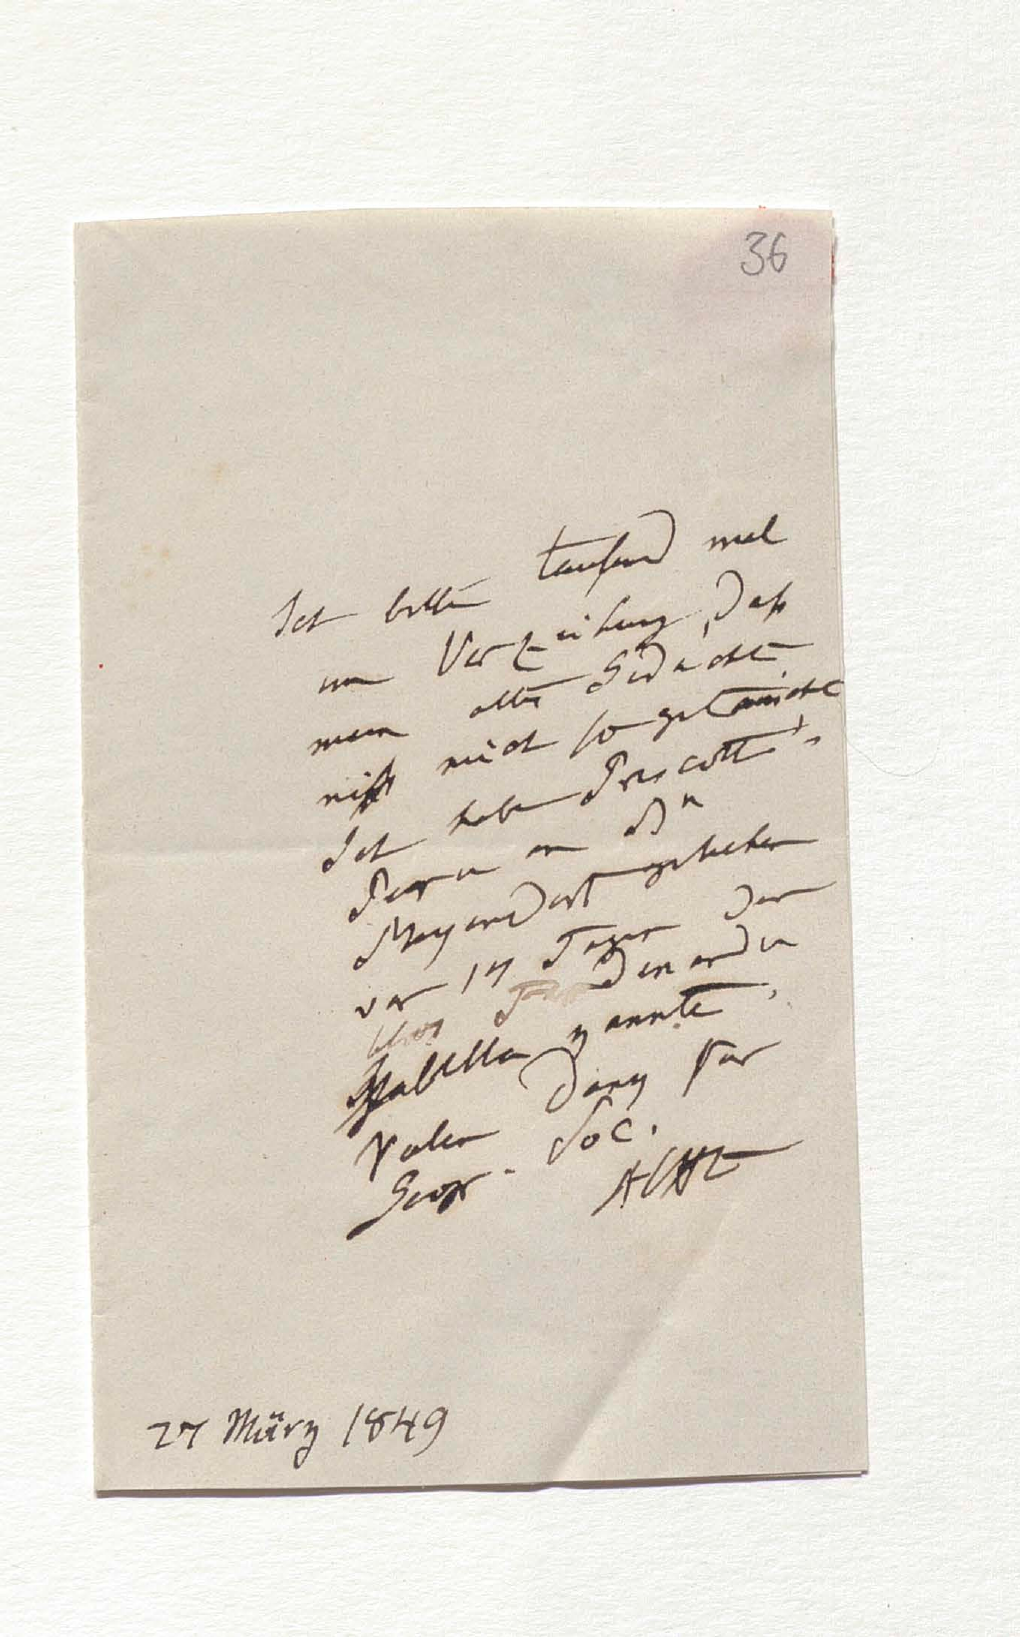 36
Ich bitte tausend mal
um Verzeihung, daß
mein altes Gedächt
niß mich so getäuscht
Ich habe Prescott's
Peru an Bn
Meyendorf geliehen
vor 14 Tagen der
blos Ferdinand u
Isabella kannte.
Vielen Dank für
Geogr. Soc.
AvHt
27 März 1849